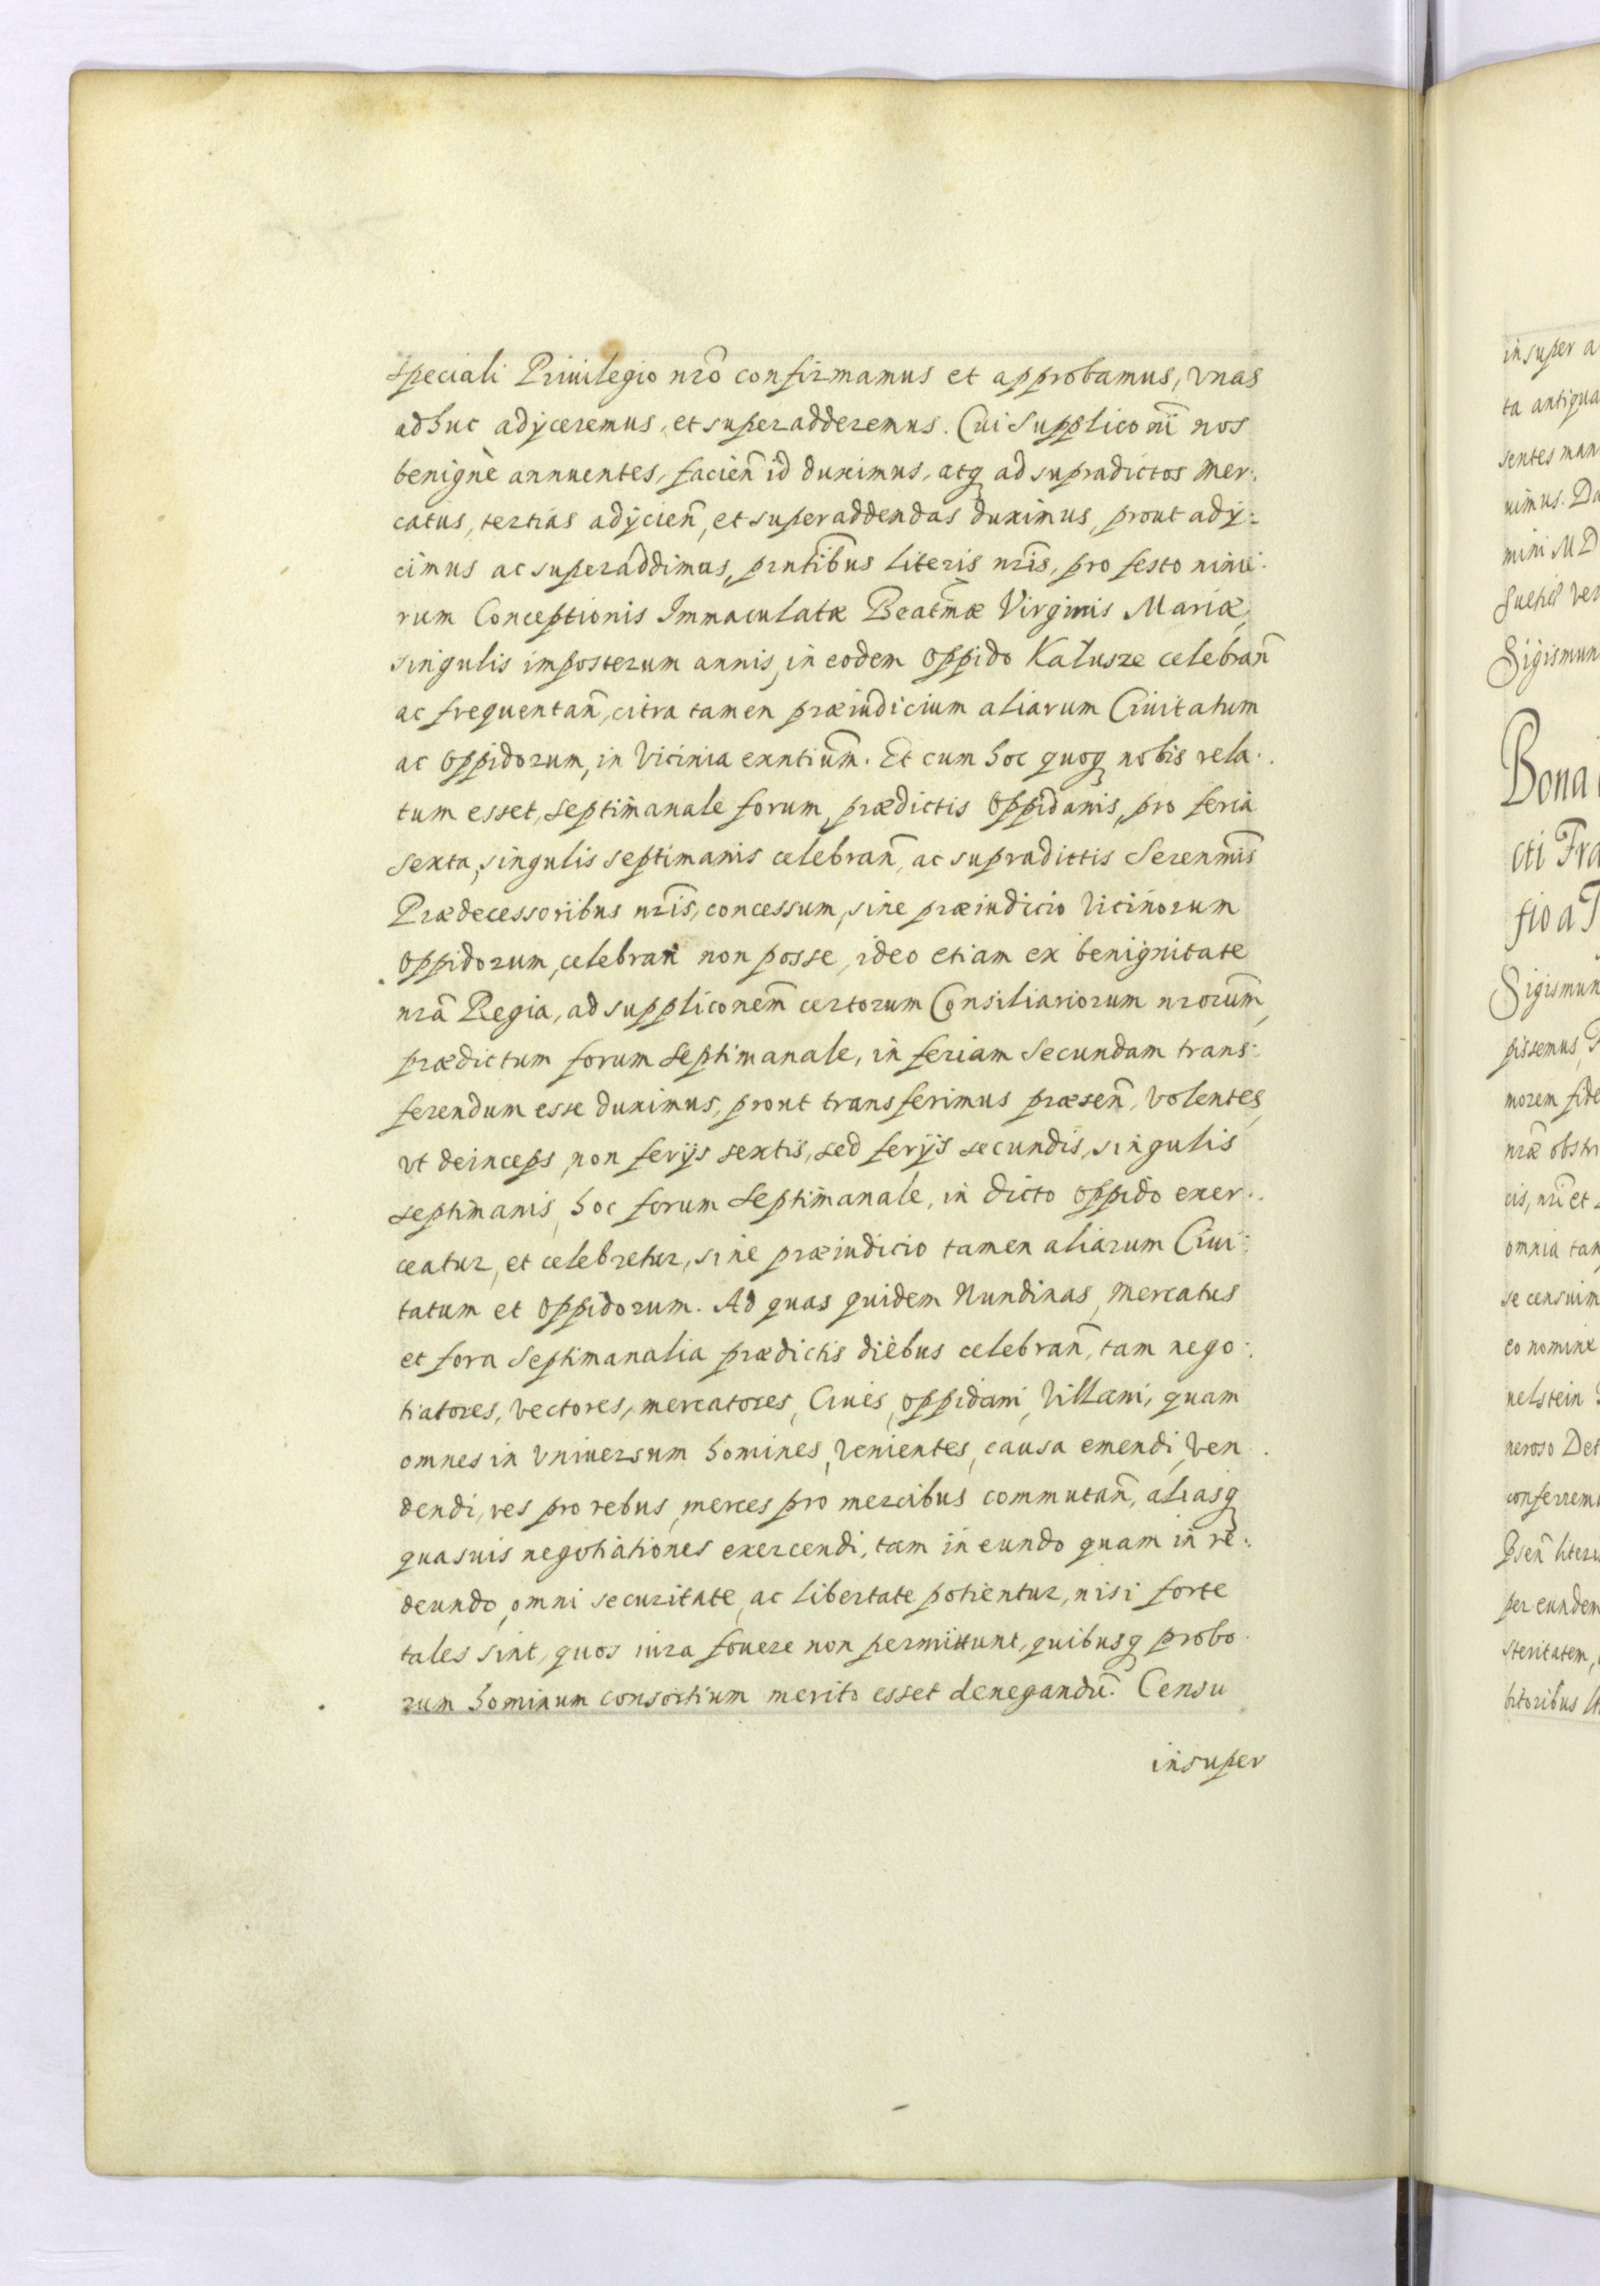 speciali Priuilegio nr̃o confirmamus et approbamus, vnas
adhuc adÿceremus, et superadderemus. Cui Supplicoñi nos
benignè annuentes, facieñ id duximus, atq ad supradictos Mer:
catus, tertias adÿcieñ, et superaddendas duximus, prout adÿ:
cimus ac superaddimus, prñtibus literis nr̃is, pro festo nimi:
rum Conceptionis Immaculatæ Beatm̃æ Virginis Mariæ,
singulis imposterum annis, in eodem Oppido Kałusze celebrañ
ac frequentañ, citra tamen præiudicium aliarum Ciuitatum
ac Oppidorum, in Vicinia exn̄tium̃. Et cum hoc quoq nobis rela:
tum esset, septimanale forum, prædictis Oppidanis, pro feria
sexta, singulis septimanis celebrañ, ac supradictis Serenm̃is
Prædecessoribus nr̃is, concessum, sine præiudicio Vicinorum
Oppidorum, celebrari non posse, ideo etiam ex benignitate
nr̃a Regia, ad suppliconem̃ certorum Consiliariorum nrorum̃,
prædictum forum Septimanale, in feriam Secundam trans:
ferendum esse duximus, prout transferimus præseñ, Volentes,
vt deinceps, non ferijs sextis, sed ferijs secundis, singulis
septimanis, hoc forum Septimanale, in dicto Oppido exer:
ceatur, et celebretur, sine præiudicio tamen aliarum Ciui:
tatum et Oppidorum. Ad quas quidem Nundinas, Mercatus
et fora Septimanalia prædictis diebus celebrañ, tam nego:
tiatores, vectores, mercatores, Ciues, Oppidani, Villani, quam
omnes in vniuersum homines, Venientes, causa emendi, Ven
dendi, res pro rebus, merces pro mercibus commutañ, aliasq
quasuis negotiationes exercendi, tam in eundo quam in re:
deundo, omni securitate, ac libertate potientur, nisi forte
tales sint, quos iura fouere non permittunt, quibusq probo
rum hominum consortium merito esset denegandũ. Censu
insuper
insuper a
ta antiqua
sentes man
nimus. Da
mini MD
Sueticæ ver
Sigismun
Bona
cti Fra
fio a
Sigismun
pissemus
morem fide
nr̃æ obstri
cis, nr̃i et
omnia tam
se censuim
eo nomine
nelstein
neroso Det
conferrem
Psen̄ litera
per eundem
steritatem,
bitoribus